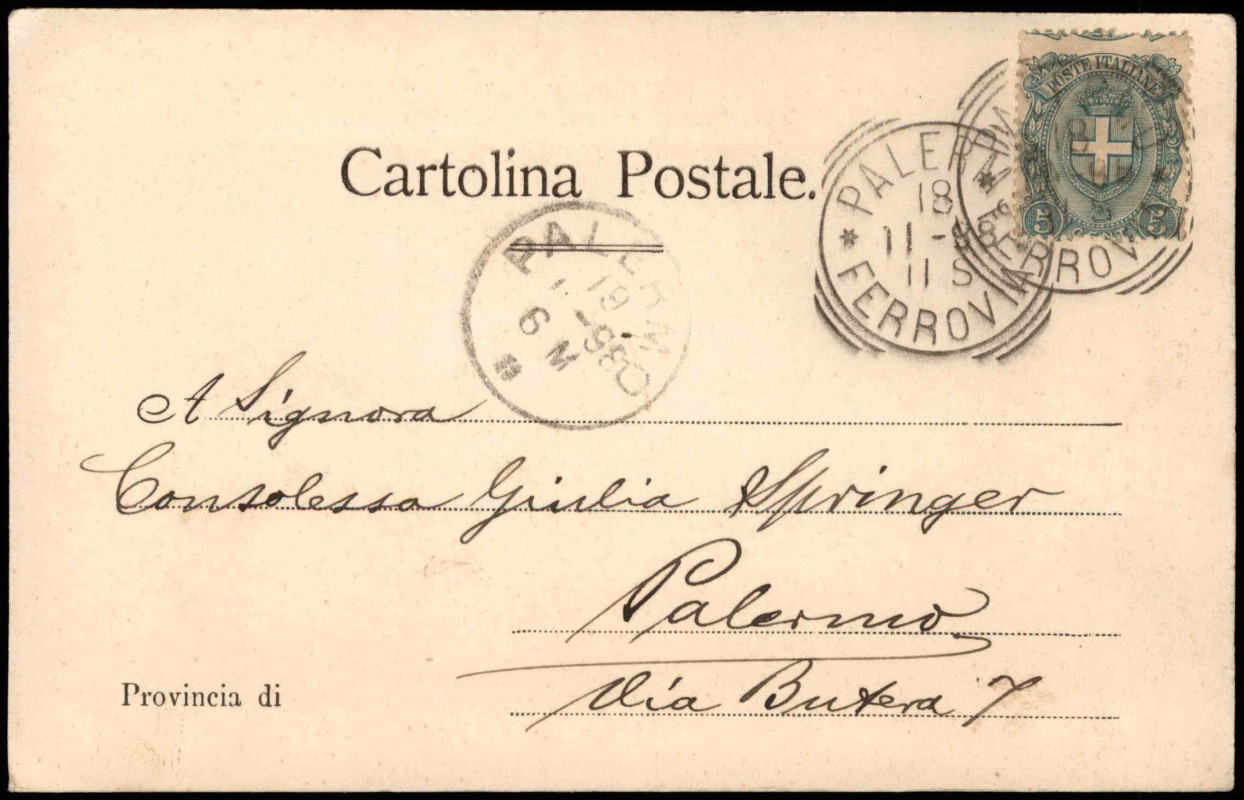 POSTE ITALIANE
5 5
Cartolina Postale.
PALERMO
18
11-98
11 S
FERROVIA
PALERMO
19
-98
6 M
A Signora
Consolessa Giulia Springer
Palermo
Provincia di
Via Butera 7